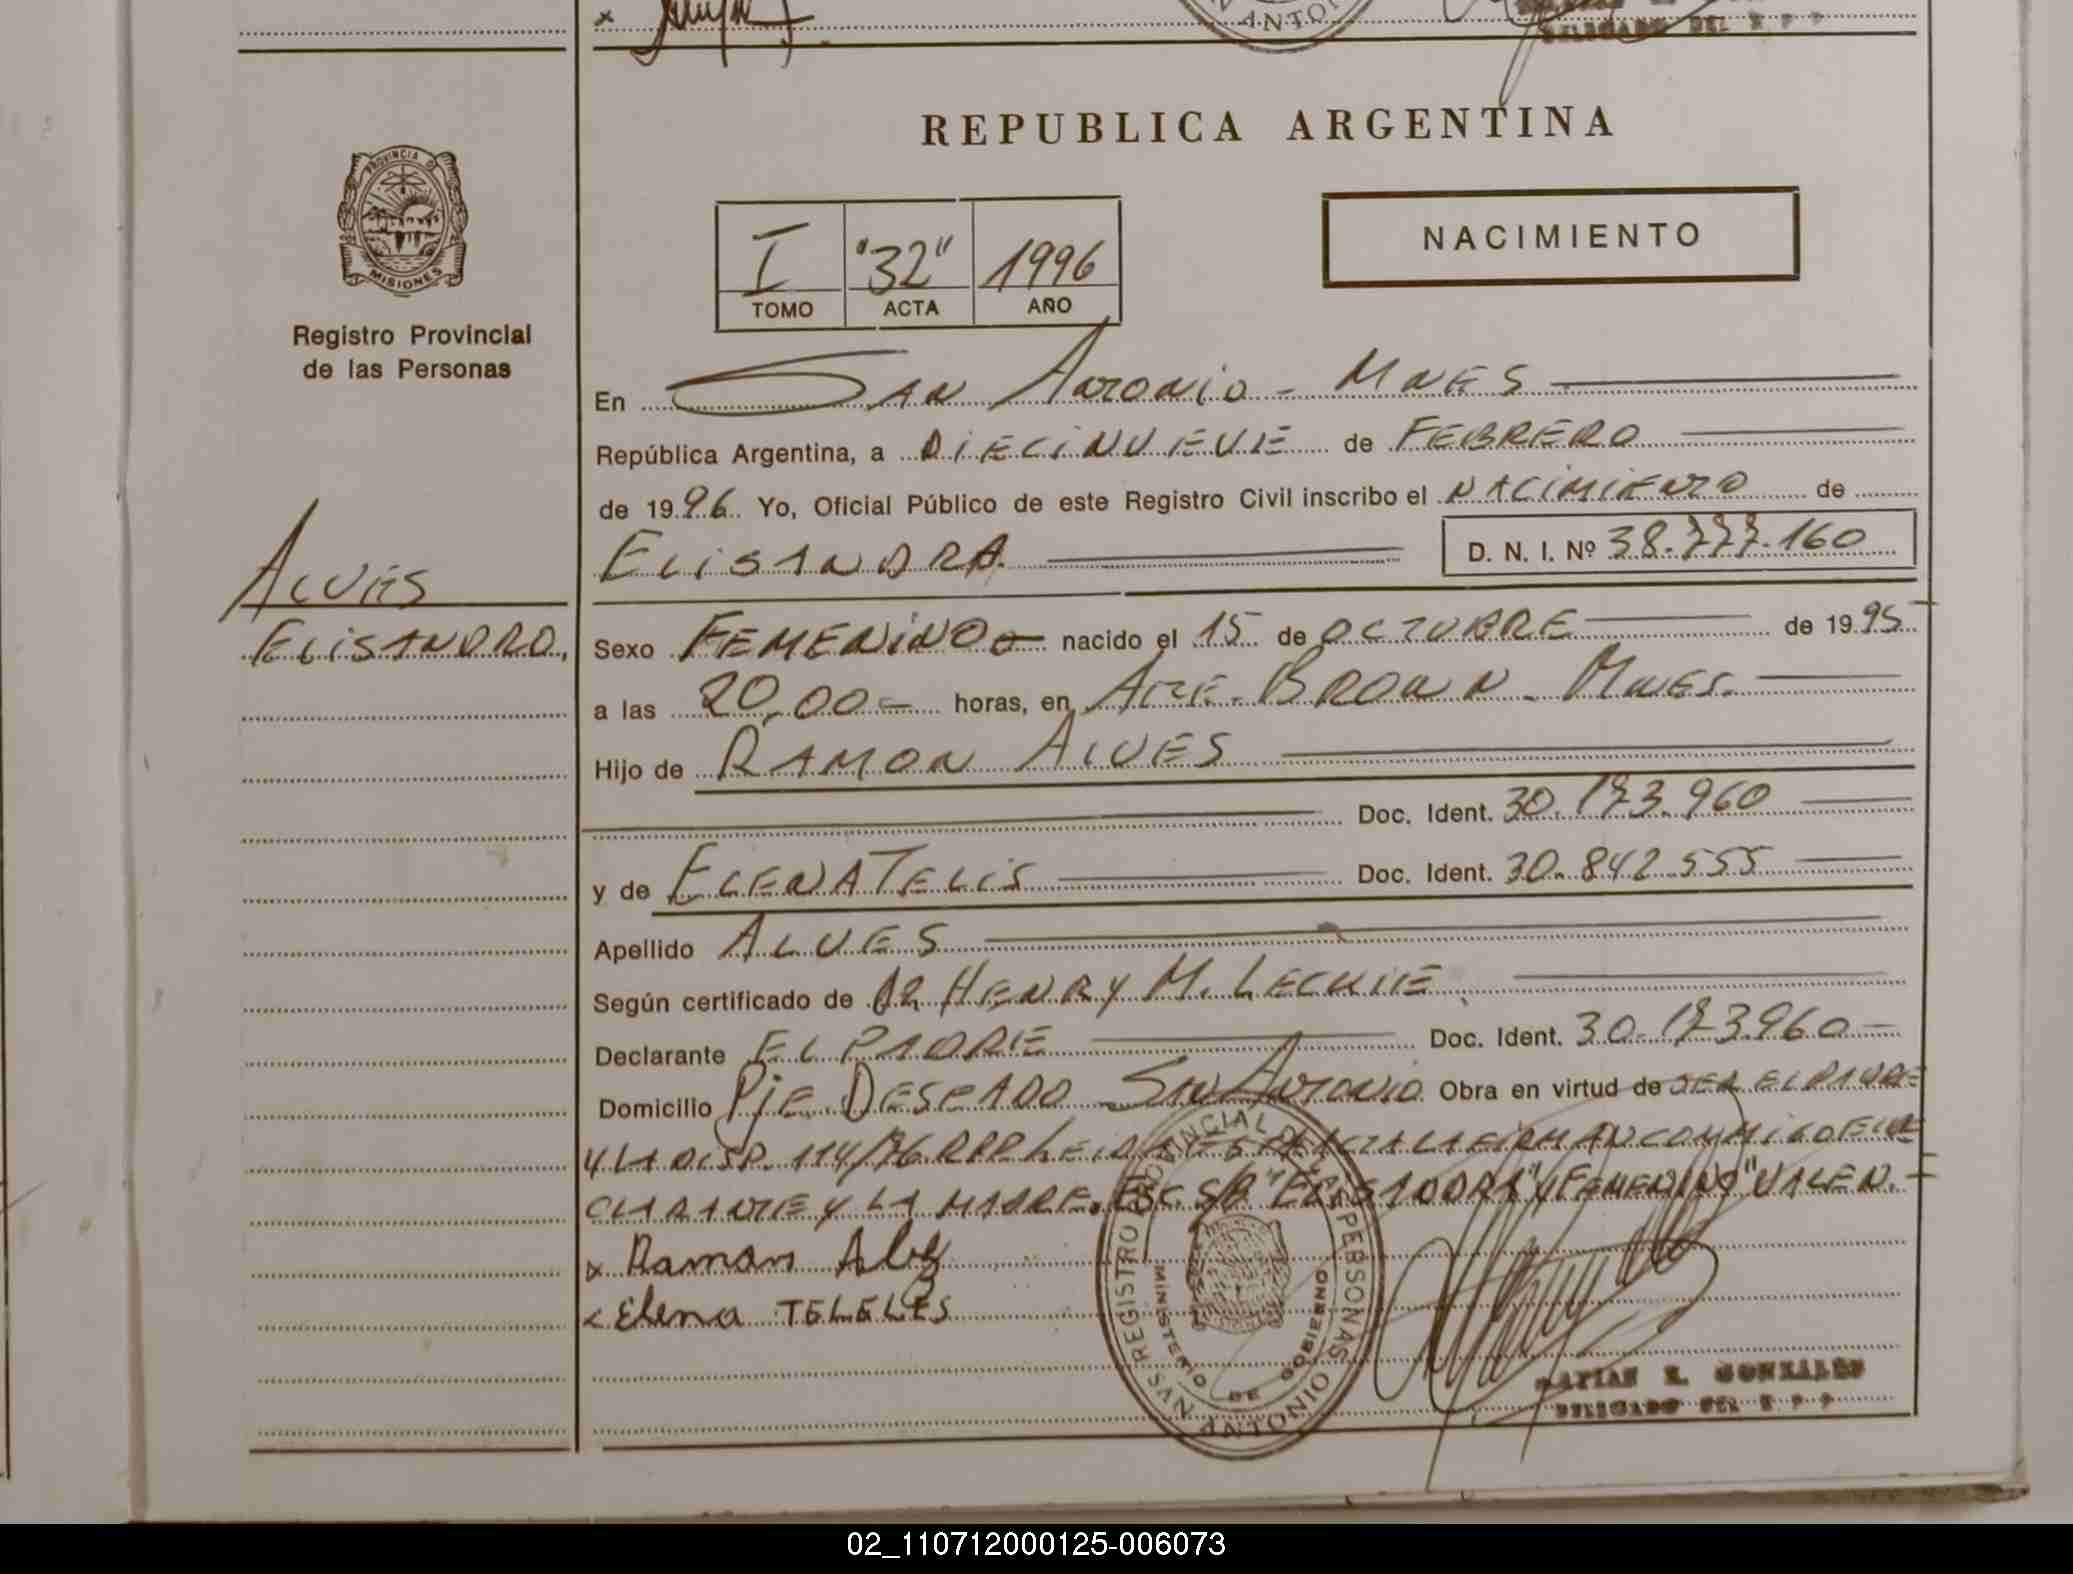 ANTO
DELEGADO DEL R P P
PROVINCIA D
MISIONES
Registro Provincial
de las Personas
REPUBLICA ARGENTINA
I "32" 1996
TOMO ACTA AÑO
NACIMIENTO
En San Antonio - Mnes
República Argentina, a DIECINUEVE de FEBRERO
de 1996. Yo, Oficial Público de este Registro Civil inscribo el NACIMIENTO de
ELISANDRA. D. N. I. Nº 38.777.160
ALVES
ELISANDRO,
Sexo FEMENINO nacido el 15 de OCTUBRE de 1995
a las 20,00 horas, en Alte. BROWN - Mnes.
Hijo de RAMON ALVES
Doc. Ident. 30.173.960
y de ELENA TELIS Doc. Ident. 30.842.555
Apellido ALVES
Según certificado de DR HENRY M.
Declarante EL PADRE Doc. Ident. 30.173.960
Domicilio Pje DESEADO - SAN ANTONIO Obra en virtud de SER EL PADRE
Y LA DISP. 114/76 RPP LEIDA ESTA ACTA LA FIRMAN CONMIGO EL DE
CLARANTE Y LA MADRE. ESC. S/R "ELISANDRA" Y "FEMENINO" VALEN.
x Raman Alvz
x Elena TELELES
REGISTRO PROVINCIAL DE LAS PERSONAS
MINISTERIO DE GOBIERNO
SAN ANTONIO
GONZALES
DELEGADO DEL R P P
02_110712000125-006073